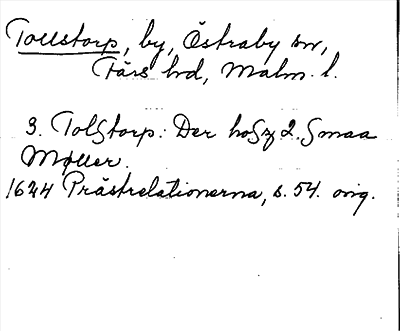 Tollstorp, by, Östraby sn,
Färs hd, Malm. l.
3. Tolßtorp: Der hoßz 2. Smaa
Møller.
1624 Prästrelationerna, s. 54. orig.